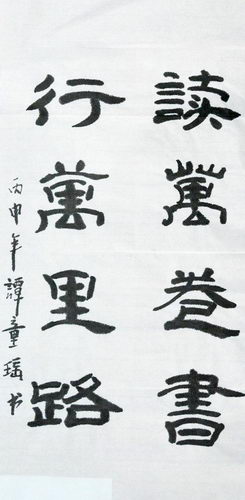 读萬卷書
行萬里路
丙申年譚童瑶书